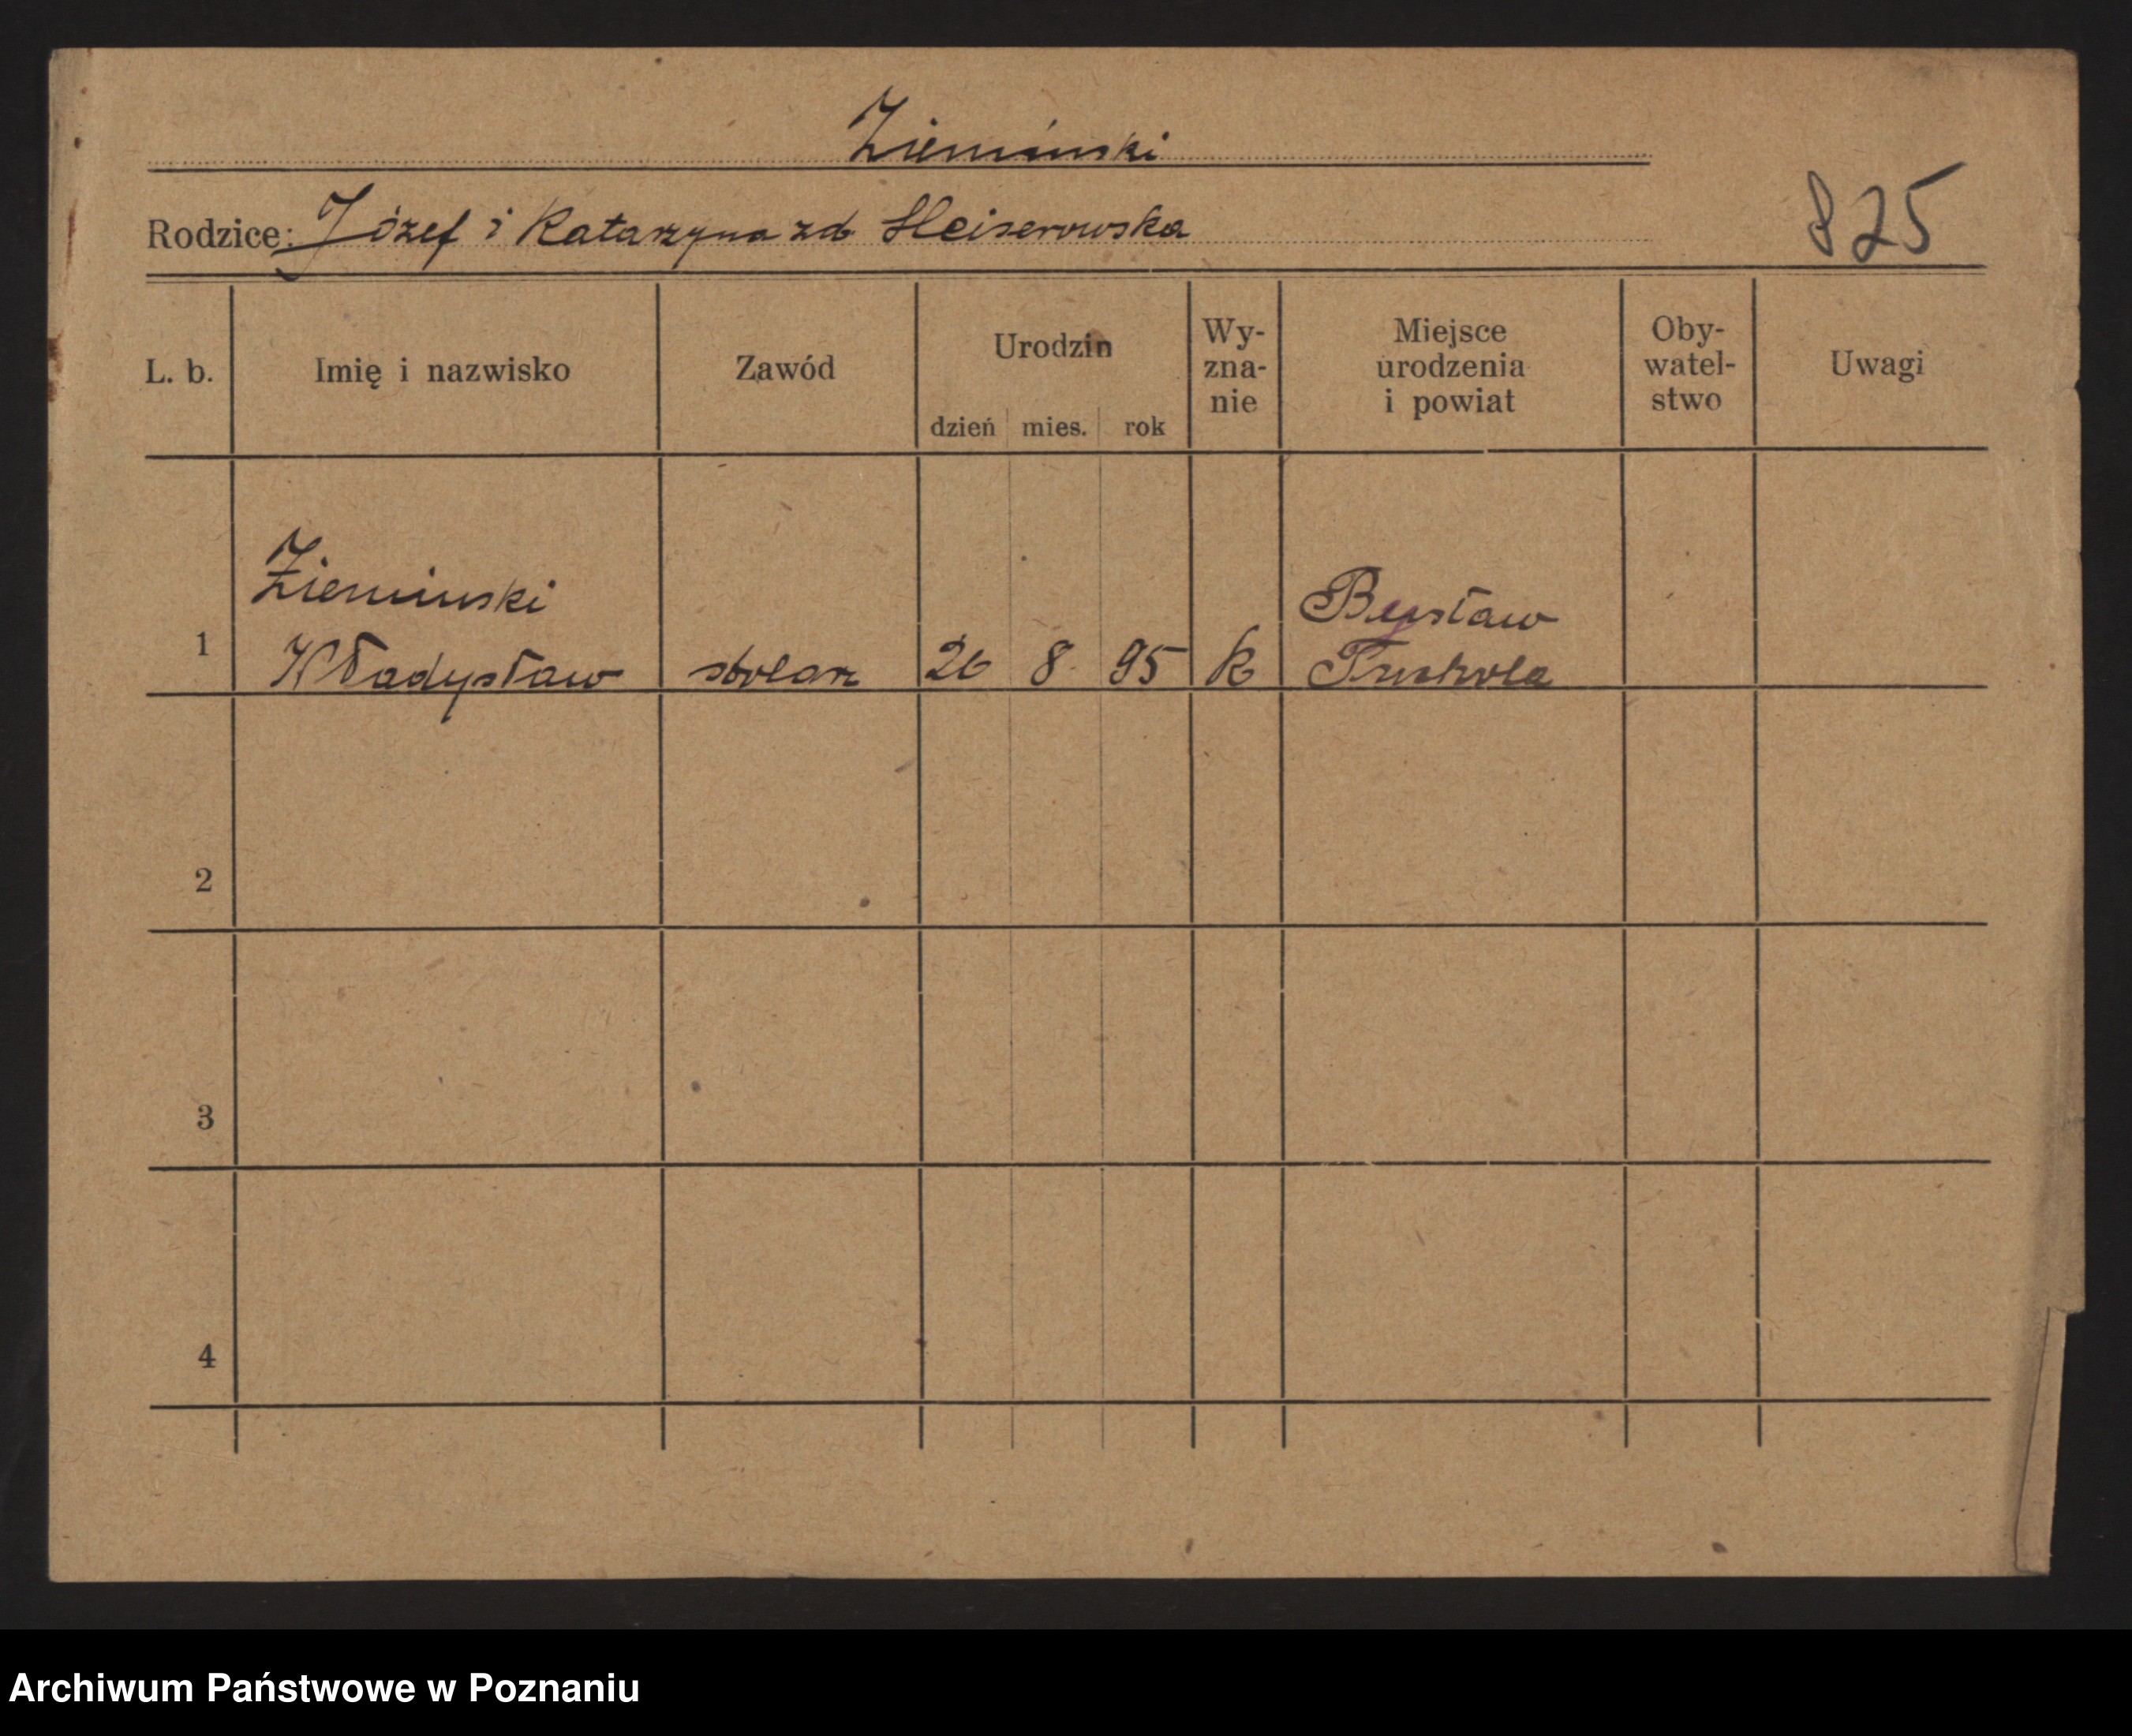 Ziemiński
825
Rodzice: Józef i Katarzyna zd Heiserowska
L. b.
Imię i nazwisko
Zawód
Urodzin
dzień mies. rok
Wy-
zna-
nie
Miejsce
urodzenia
i powiat
Oby-
watel-
stwo
Uwagi
1
Ziemiński
Władysław
stolarz
26 8. 95
k
Bysław
Tuchola
2
3
4
Archiwum Państwowe w Poznaniu